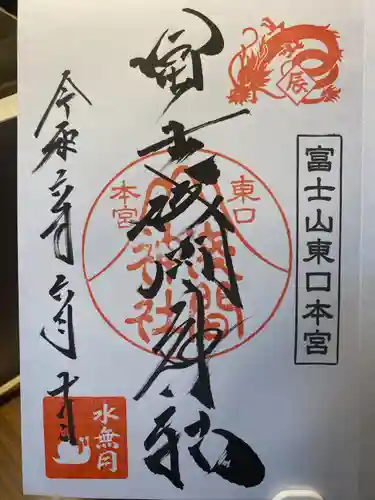 富士山東口本宮
辰
冨士浅間神社
東口
本宮
浅間
神社
令和六年六月十三
水無月